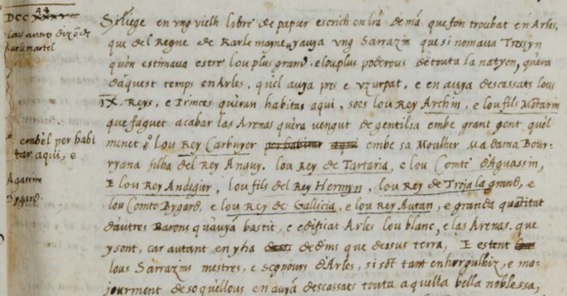 DCC 44
Si lige en vng vielh libre de papier escrich en letra de mã que fon troubat en Arles,
que del Regne de Karle mayne y auya vng Sarrazin que si nomaua Tressyn
quõn estimaua estre lou plus grand, e lou plus poderous de touta la natyon, qu'era
d'aquest temps en Arles, qu'el auya pres e vzurpat, e en auya descassats lous
IX. Reys, e Princes qu'eran habitas aqui, soes lou Rey Archin, e lou fils
que faguet acabar las Arenas qu'era vengut de gentilia embe grant gent, quel
embel per habi
tar aqui, o
menet o lou Rey Carbuyer embe sa Moulher, Ma dama Bour-
ryana filha del Rey Anguy. lou Rey de Tartaria, e lou Comte d'Aguassin,
Agassin
E lou Rey Andigier, lou fils del Rey Hermyn, lou Rey de Troja la grand, e
Bygard
lou Comte Bygard, e lou Rey de Gallicia, e lou Rey Autan, e granda quãtitat
d'autres Barons qu'auyã bastit, e edificat Arles lou blanc, e las Arenas que
y sont, car autant en y ha de dins que dessus terra, E estent
lous Sarrazins mestres, e segnours d'Arles, si sõt tant enhorgulhiz, e ma-
jourment de so quellous en auyã descassats touta aquella bella noblessa,